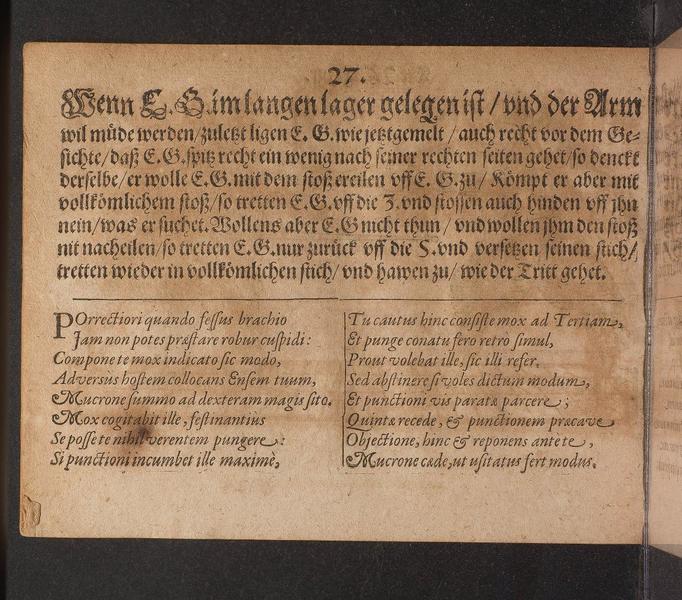 27.
Wenn E. G. im langen lager gelegen ist / vnd der Arm
wil müde werden / zuletzt ligen E. G. wie jetztgemelt / auch recht vor dem Ge-
sichte / daß E. G. spitz recht ein wenig nach seiner rechten seiten gehet / so denckt
derselbe / er wolle E. G. mit dem stoß ereilen vff E. G. zu / Kömpt er aber mit
vollkömlichem stoß / so tretten E. G. vff die 3. vnd stossen auch hinden vff ihn
nein / was er suchet. Wollens aber E. G nicht thun / vnd wollen jhm den stoß
nit nacheilen / so tretten E. G. nur zurück vff die 5. vnd versetzen seinen stich /
tretten wieder in vollkömlichen stich / vnd hawen zu / wie der Tritt gehet.
POrrectiori quando fessus brachio
Jam non potes præstare robur cuspidi:
Compone te mox indicato sic modo,
Adversùs hostem collocans Ensem tuum,
Mucrone summo ad dexteram magis sito.
Mox cogitabit ille, festinantiùs
Se posse te nihil verentem pungere:
Si punctioni incumbet ille maximè,
Tu cautus hinc consiste mox ad Tertiam,
Et punge conatu fero retro simul,
Prout volebat ille, sic illi refer.
Sed abstinere si voles dictum modum,
Et punctioni vis paratæ parcere;
Quintæ recede, & punctionem præcave
Objectione, hinc & reponens ante te,
Mucrone cæde, ut usitatus fert modus.